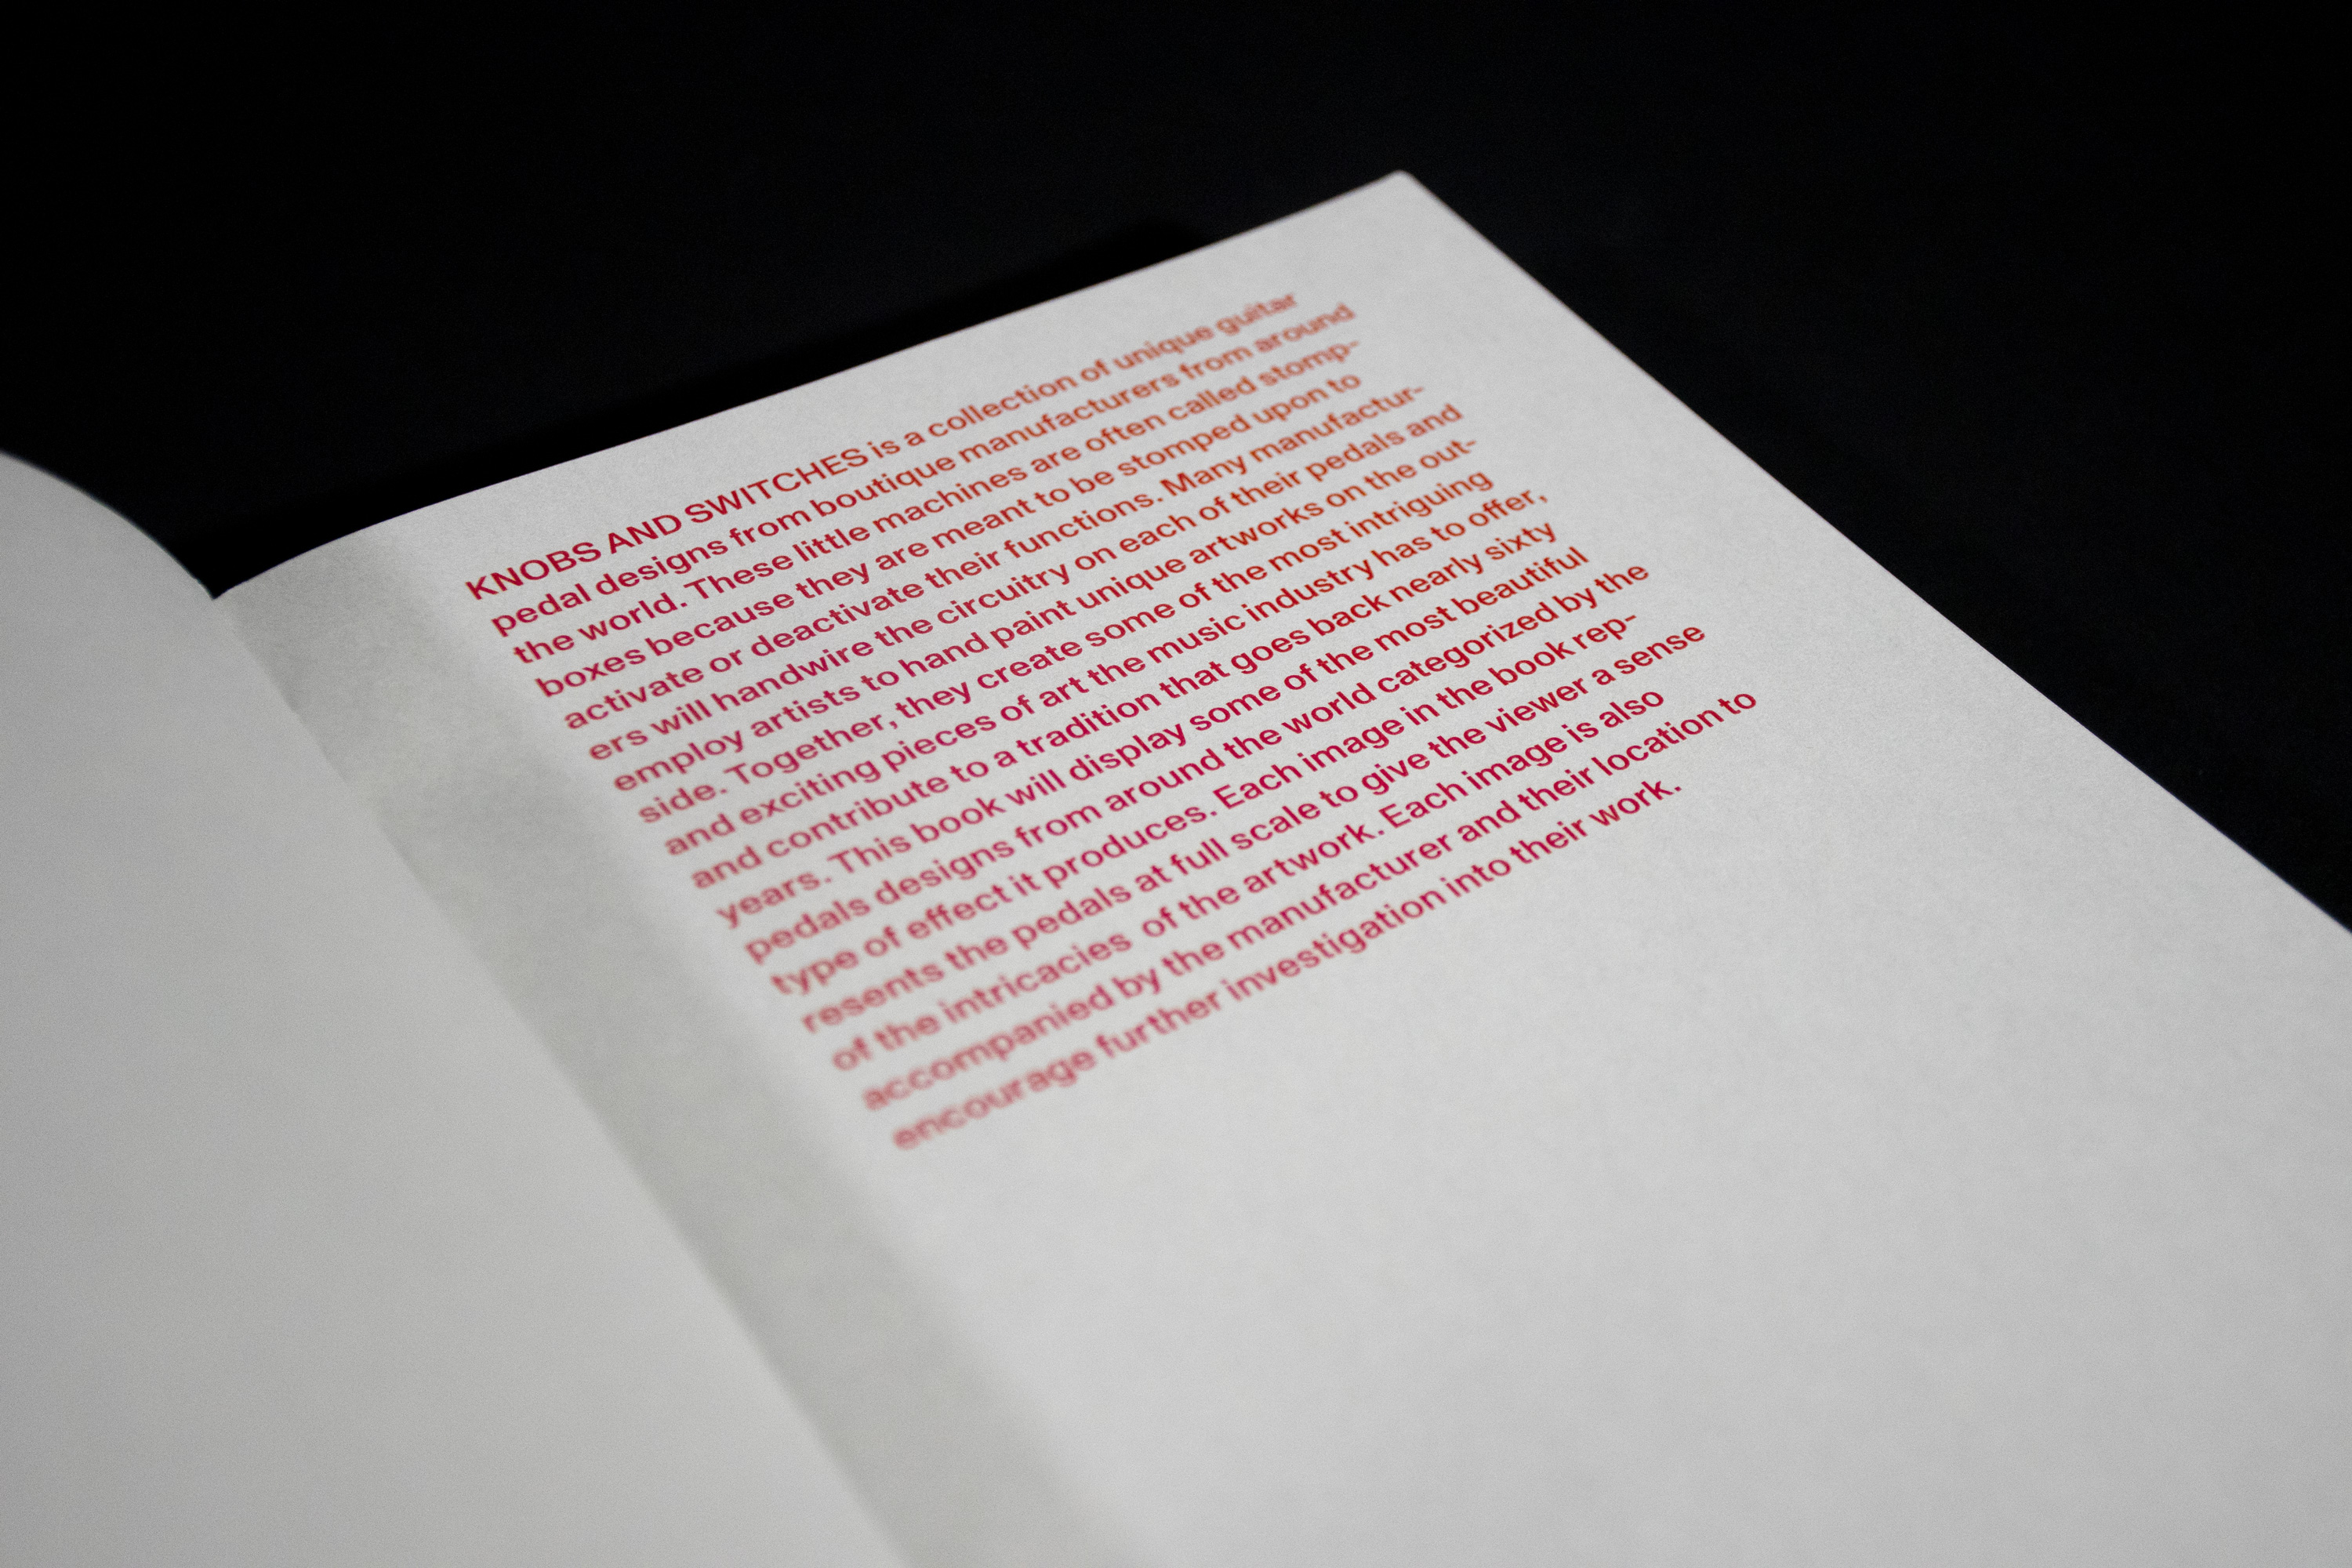 KNOBS AND SWITCHES is a collection of unique guitar
pedal designs from boutique manufacturers from around
the world. These little machines are often called stomp-
boxes because they are meant to be stomped upon to
activate or deactivate their functions. Many manufactur-
ers will handwire the circuitry on each of their pedals and
employ artists to hand paint unique artworks on the out-
side. Together, they create some of the most intriguing
and exciting pieces of art the music industry has to offer,
and contribute to a tradition that goes back nearly sixty
years. This book will display some of the most beautiful
pedals designs from around the world categorized by the
type of effect it produces. Each image in the book rep-
resents the pedals at full scale to give the viewer a sense
of the intricacies of the artwork. Each image is also
accompanied by the manufacturer and their location to
encourage further investigation into their work.